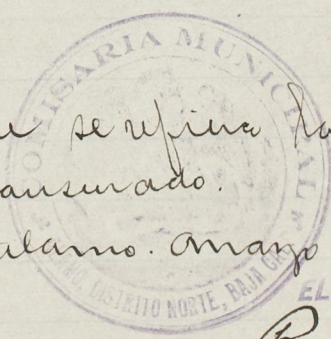 COMISARIA MUNICIPAL
se refiera
ansurado.
alamo. Marzo
MO, DISTRITO NORTE, BAJA
EL